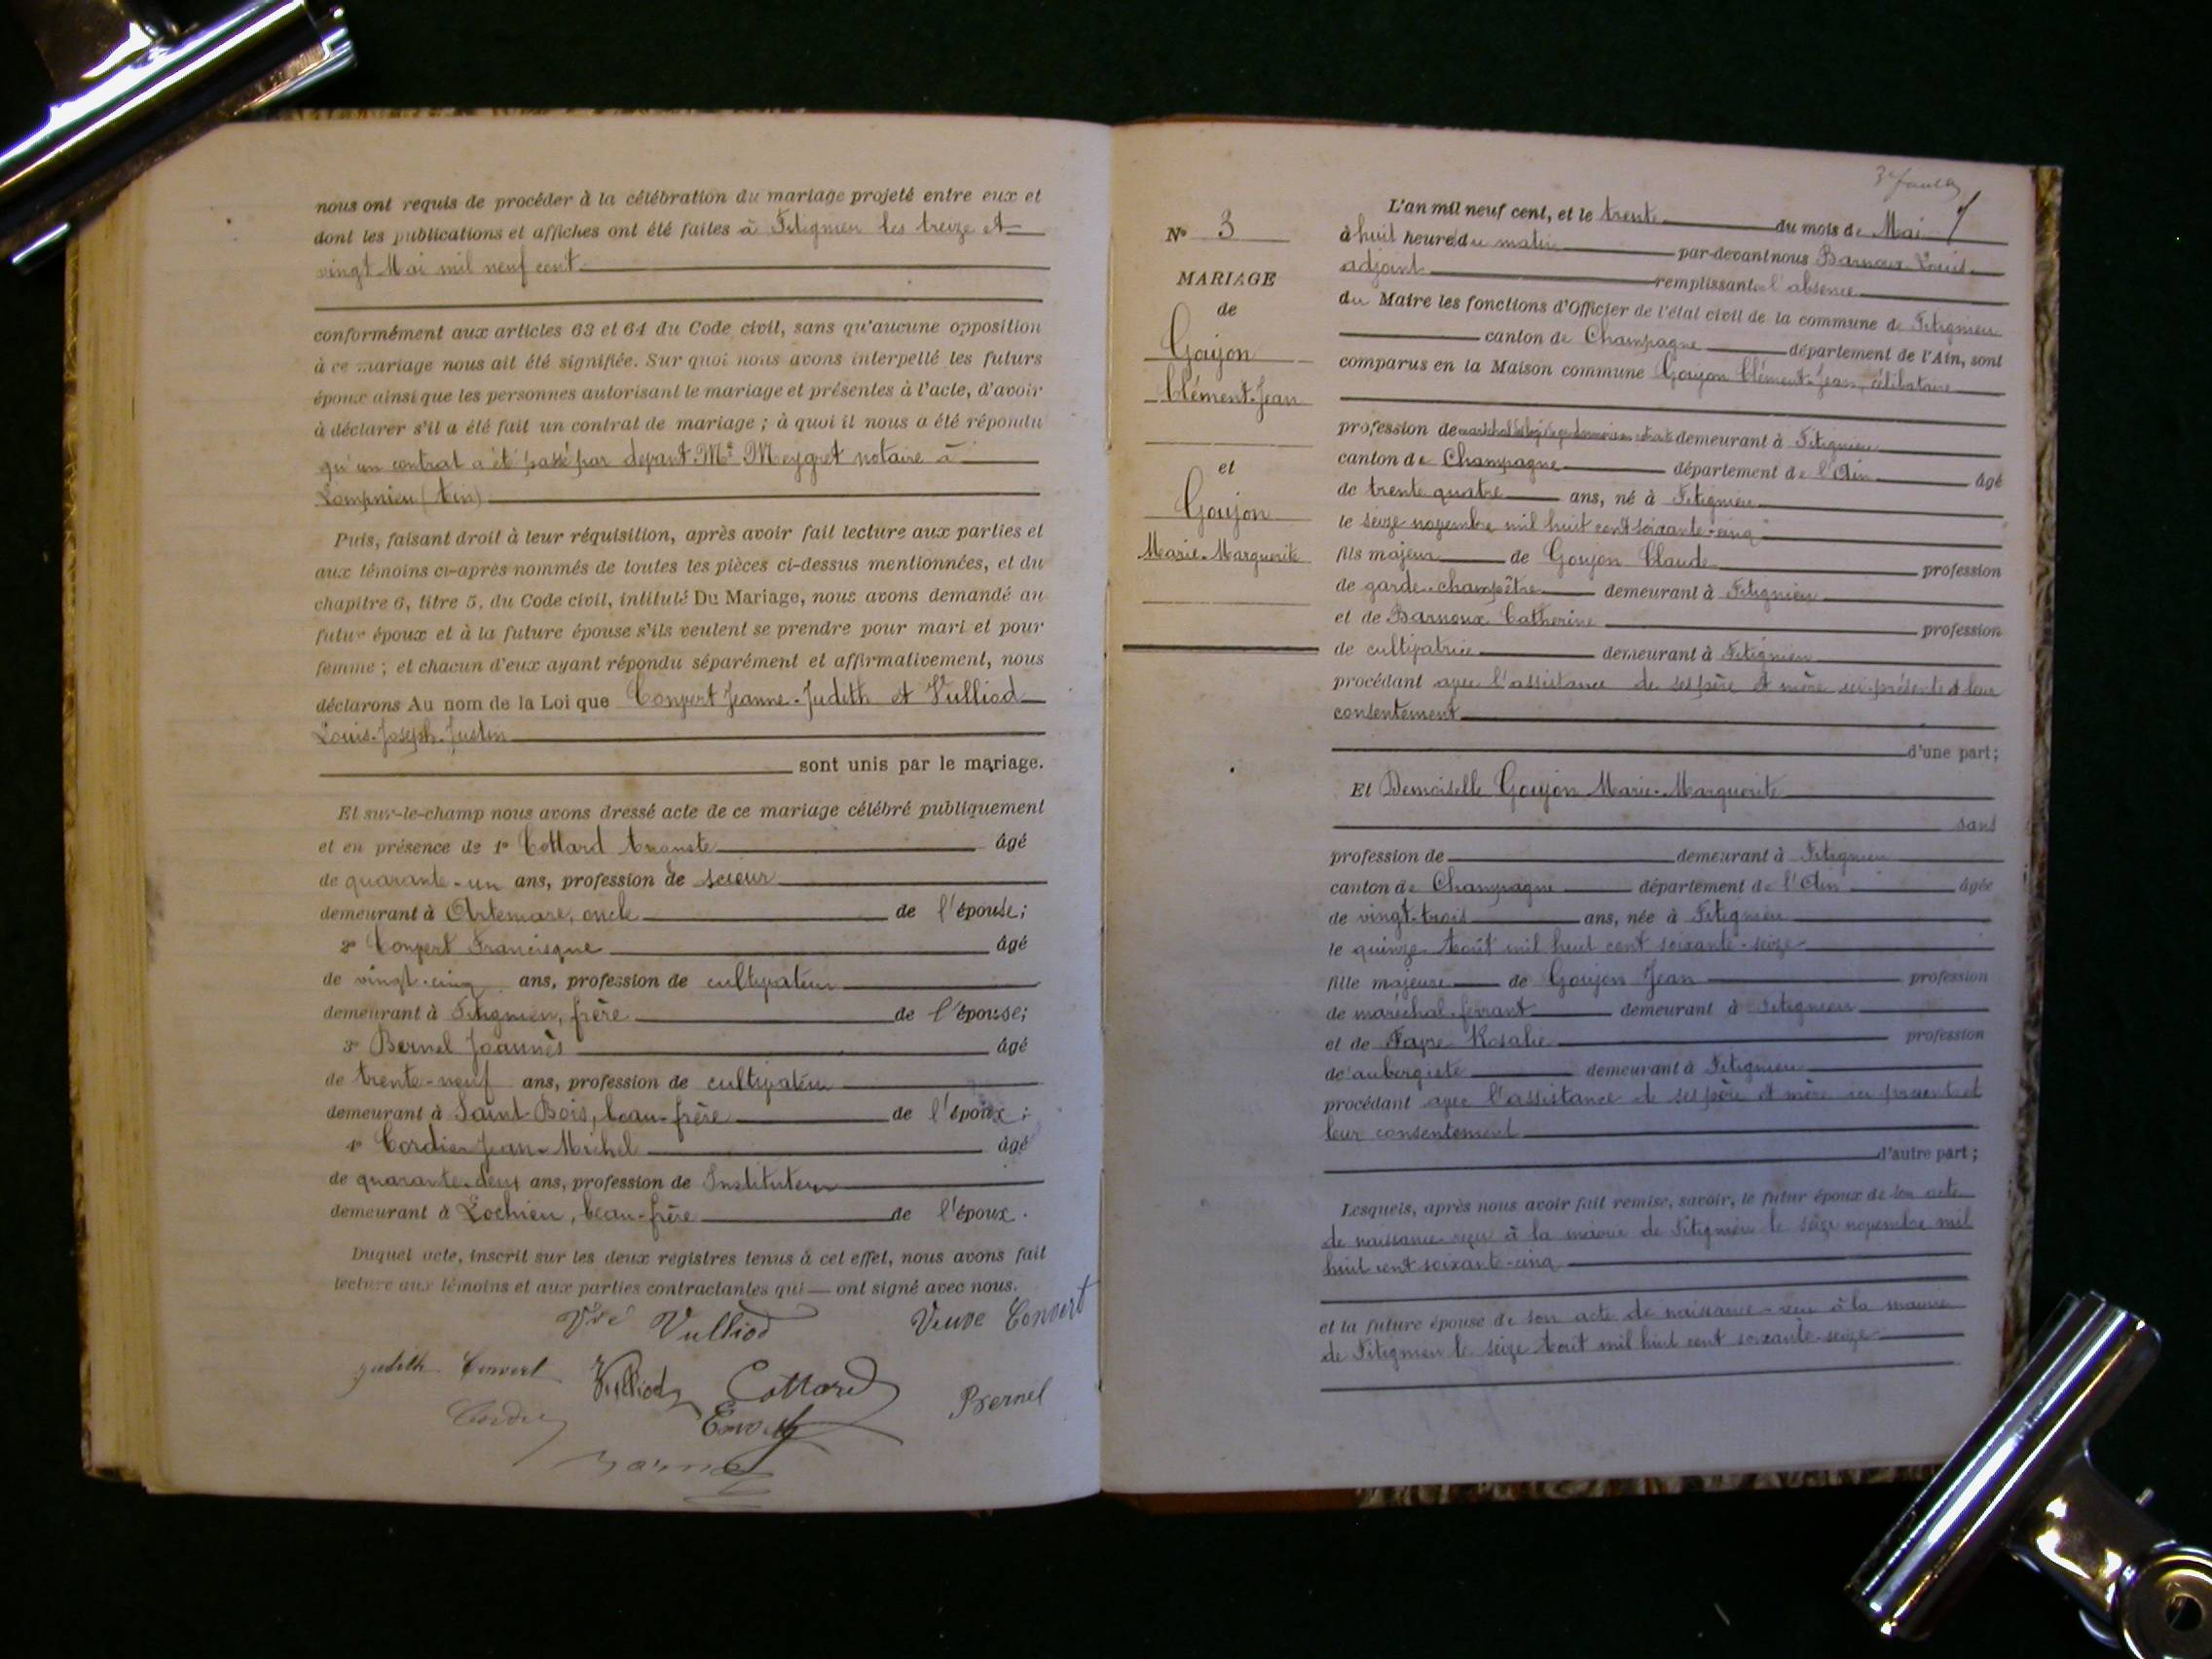 nous ont requis de procéder à la célébration du mariage projeté entre eux et
dont les publications et affiches ont été faites à Fitignieu les treize et
vingt Mai mil neuf cent.
conformément aux articles 63 et 64 du Code civil, sans qu'aucune opposition
à ce mariage nous ait été signifiée. Sur quoi nous avons interpellé les futurs
époux ainsi que les personnes autorisant le mariage et présentes à l'acte, d'avoir
à déclarer s'il a été fait un contrat de mariage ; à quoi il nous a été répondu
qu'un contrat a été passé par devant Me Meygret notaire à
Lompnieu (Ain)
Puis, faisant droit à leur réquisition, après avoir fait lecture aux parties et
aux témoins ci-après nommés de toutes les pièces ci-dessus mentionnées, et du
chapitre 6, titre 5, du Code civil, intitulé Du Mariage, nous avons demandé au
futur époux et à la future épouse s'ils veulent se prendre pour mari et pour
femme ; et chacun d'eux ayant répondu séparément et affirmativement, nous
déclarons Au nom de la Loi que Convert Jeanne-Judith et Vulliod
Louis-Joseph-Justin
sont unis par le mariage.
Et sur-le-champ nous avons dressé acte de ce mariage célébré publiquement
et en présence de 1° Cottard Auguste âgé
de quarante-un ans, profession de scieur
demeurant à Artemare, oncle de l'épouse;
2° Convert Francisque âgé
de vingt-cinq ans, profession de cultivateur
demeurant à Fitignieu, frère de l'épouse;
3° Bernel Joannès âgé
de trente-neuf ans, profession de cultivateur
demeurant à Saint-Bois, beau-frère de l'époux;
4° Cordier Jean-Michel âgé
de quarante-deux ans, profession de Instituteur
demeurant à Lochieu, beau-frère de l'époux.
Duquel acte, inscrit sur les deux registres tenus à cet effet, nous avons fait
lecture aux témoins et aux parties contractantes qui ont signé avec nous.
Vve Vulliod Veuve Convert
Judith Convert Vulliod Cottard
Cordier Convert Bernel
3e feuillet
N° 3
MARIAGE
de
Goujon
Clément-Jean
et
Goujon
Marie-Marguerite
L'an mil neuf cent, et le trente du mois de Mai
à huit heure du matin par-devant nous Barnoux Louis
adjoint remplissant l'absence
du Maire les fonctions d'Officier de l'état civil de la commune de Fitignieu
canton de Champagne département de l'Ain, sont
comparus en la Maison commune Goujon Clément-Jean, célibataire
profession de demeurant à Fitignieu
canton de Champagne département de l'Ain âgé
de trente quatre ans, né à Fitignieu
le seize novembre mil huit cent soixante-cinq
fils majeur de Goujon Claude profession
de garde-champêtre demeurant à Fitignieu
et de Barnoux Catherine profession
de cultivatrice demeurant à Fitignieu
procédant avec l'assistance de ses père et mère ici présents et leur
consentement
d'une part;
Et Demoiselle Goujon Marie-Marguerite
sans
profession de demeurant à Fitignieu
canton de Champagne département de l'Ain âgée
de vingt-trois ans, née à Fitignieu
le quinze Août mil huit cent soixante-seize
fille majeure de Goujon Jean profession
de maréchal-ferrant demeurant à Fitignieu
et de Favre Rosalie profession
de aubergiste demeurant à Fitignieu
procédant avec l'assistance de ses père et mère ici présents et
leur consentement
d'autre part;
Lesquels, après nous avoir fait remise, savoir, le futur époux de son acte
de naissance reçu à la mairie de Fitignieu le seize novembre mil
huit cent soixante-cinq
et la future épouse de son acte de naissance reçu à la mairie
de Fitignieu le seize Août mil huit cent soixante-seize